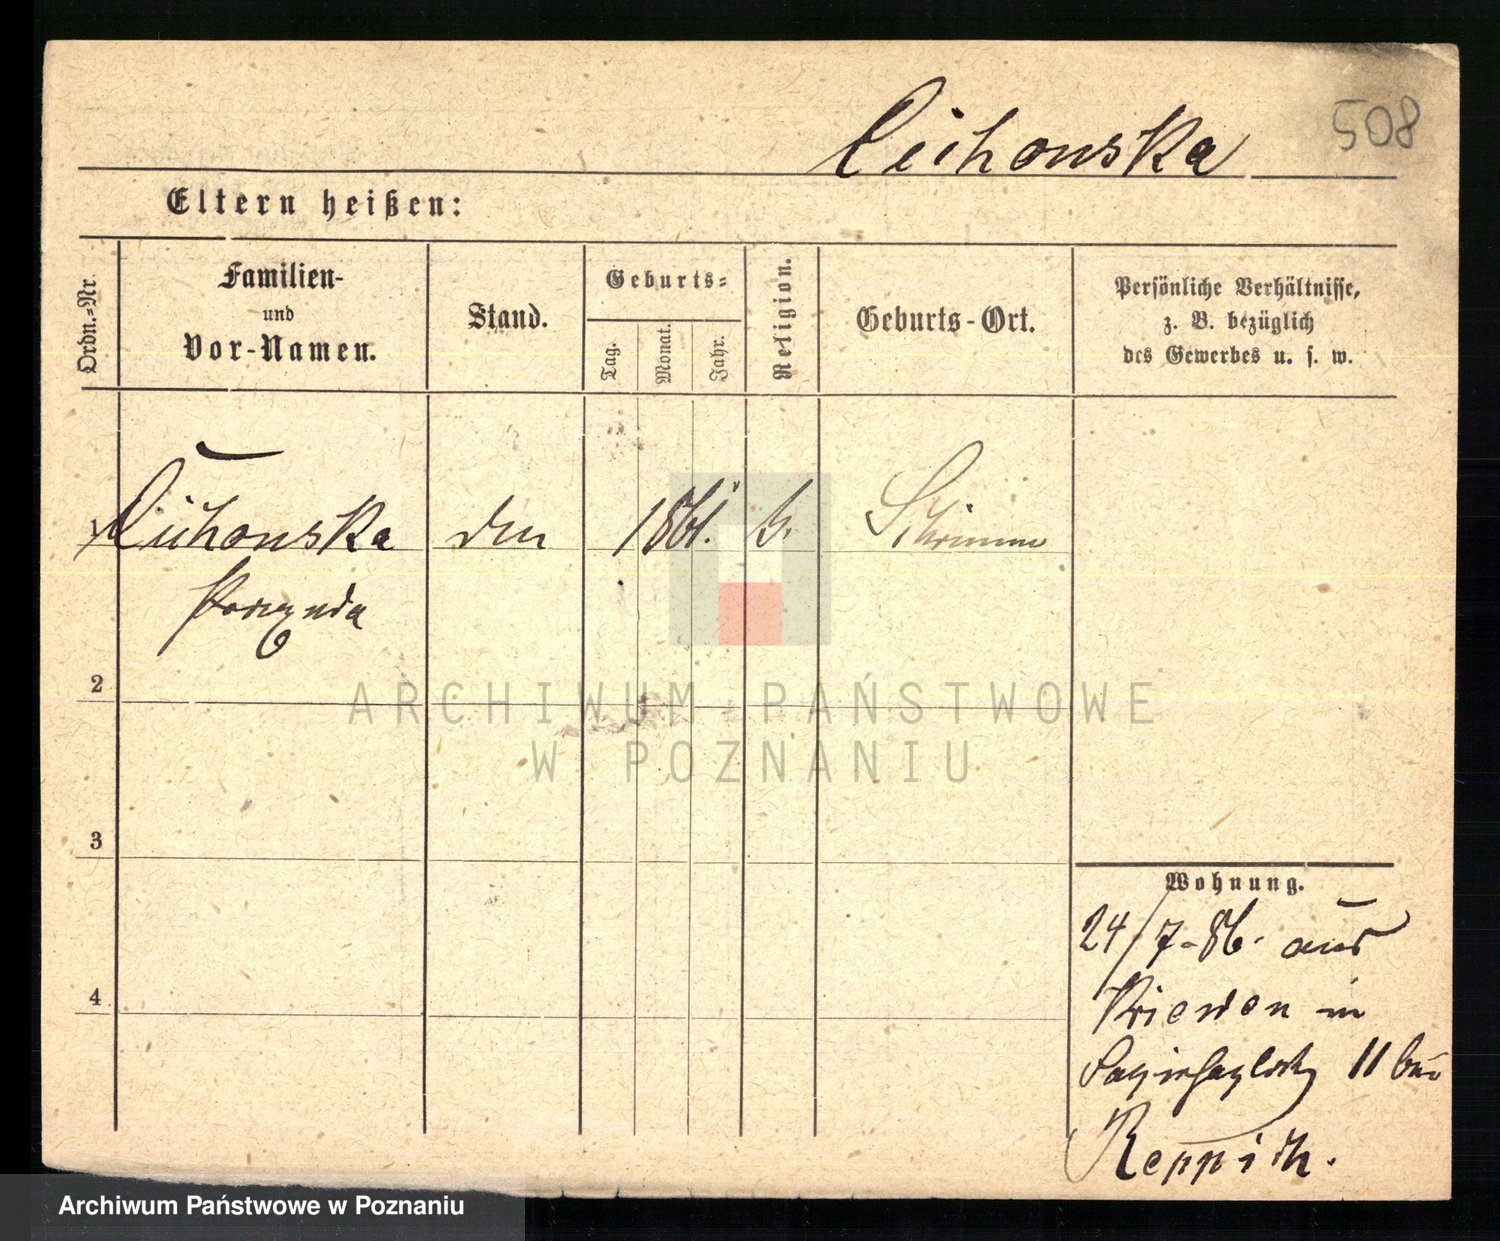 Cichonska
508
Eltern heißen:
Ordn.-Nr.
Familien-
und
Vor-Namen.
Stand.
Geburts-
Tag.
Monat.
Jahr.
Religion.
Geburts-Ort.
Persönliche Verhältnisse,
z. B. bezüglich
des Gewerbes u. s. w.
1 Cichonska 1861. Schrimm
2
ARCHIWUM PAŃSTWOWE
W POZNANIU
3
Wohnung.
24/7-86. aus
Kriewen in
11 bei
4
Archiwum Państwowe w Poznaniu